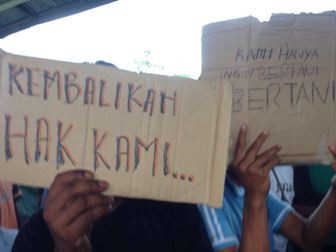 KEMBALIKAN
HAK KAMI...
KAMI HANYA
INGIN BERTANI
BERTANI